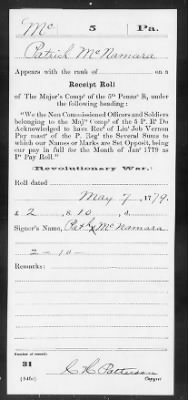 Mc. 5 Pa.
Patrick McNamara
Appears with the rank of on a
Receipt Roll
of The Major's Comp^y of the 5th Penns^a R, under the
following heading:
"We the Non Commissioned Officers and Soldiers
belonging to the Maj^r Comp^y of the 5 P. R^t Do
Acknowledged to have Rec^d of Liu^t Job Vernon
Pay mas^r of the P. Reg^t the Several Sums to
which our Names or Marks are Set Opposit, being
our pay in full for the Month of Jan^y 1779 as
P^r Pay Roll."
(Revolutionary War.)
Roll dated
May 7, 1779.
£ 2, s. 10, d.
Signer's Name, Pat^k x McNamara
2 - 10 -
Remarks:
Number of roll:
31
C H Patterson
(545c) Copyist.